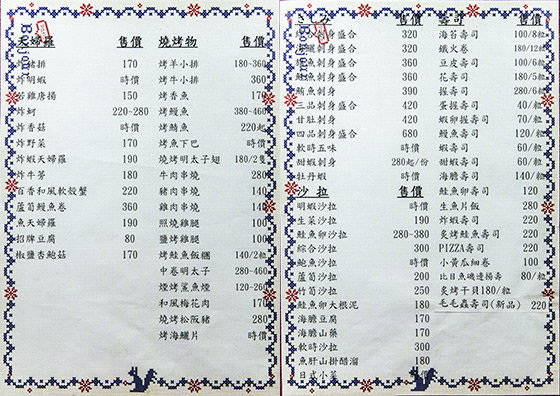 Bonjour
天婦羅 售價
炸豬排 170
炸明蝦 時價
若雞唐揚 150
炸蚵 220~280
炸香菇 時價
炸野菜 170
炸蝦天婦羅 190
炸牛蒡 180
百香和風軟殼蟹 220
蘆筍鰻魚卷 360
魚天婦羅 190
招牌豆腐 80
椒鹽杏鮑菇 170
燒烤物 售價
烤羊小排 180~360
烤牛小排 360
烤香魚 170
烤鰻魚 380~460
烤鯖魚 220起
烤魚下巴 時價
燒烤明太子翅 180/2隻
牛肉串燒 280
豬肉串燒 140
雞肉串燒 140
照燒雞腿 100
鹽烤雞腿 100
烤鮭魚飯糰 140/2粒
中卷明太子 280~460
煙烤鯊魚煙 120~260
和風梅花肉 170
燒烤松阪豬 280
烤海鱺片 時價
Bonjour
さしみ 售價
刺身盛合 320
刺身盛合 320
魚刺身盛合 360
鮭魚刺身盛合 360
鮪魚刺身 390
三品刺身盛合 420
甘肚刺身 420
四品刺身盛合 680
軟時五味 時價
甜蝦刺身 280起/份
牡丹蝦 時價
沙拉 售價
明蝦沙拉 時價
生菜沙拉 190
鮭魚卵沙拉 280~380
綜合沙拉 300
鮑魚沙拉 時價
蘆筍沙拉 200
竹筍沙拉 250
鮭魚卵大根泥 180
海膽豆腐 170
海膽山藥 170
軟時沙拉 300
魚肝山掛醋溜 180
日式小菜 價
壽司 售價
海苔壽司 100/8粒
鐵火卷 180/12粒
豆皮壽司 100/6粒
花壽司 180/5粒
握壽司 280/6粒
蛋握壽司 40/粒
蝦卵握壽司 70/粒
鰻魚壽司 120/粒
蝦壽司 60/粒
甜蝦壽司 60/粒
海膽壽司 140/粒
鮭魚卵壽司 120
生魚片飯 280
炸蝦壽司 220
炙烤鮭魚壽司 220
PIZZA壽司 220
小黃瓜細卷 100
比目魚磯邊揚壽 80/粒
炙烤干貝180/粒
毛毛蟲壽司(新品) 220